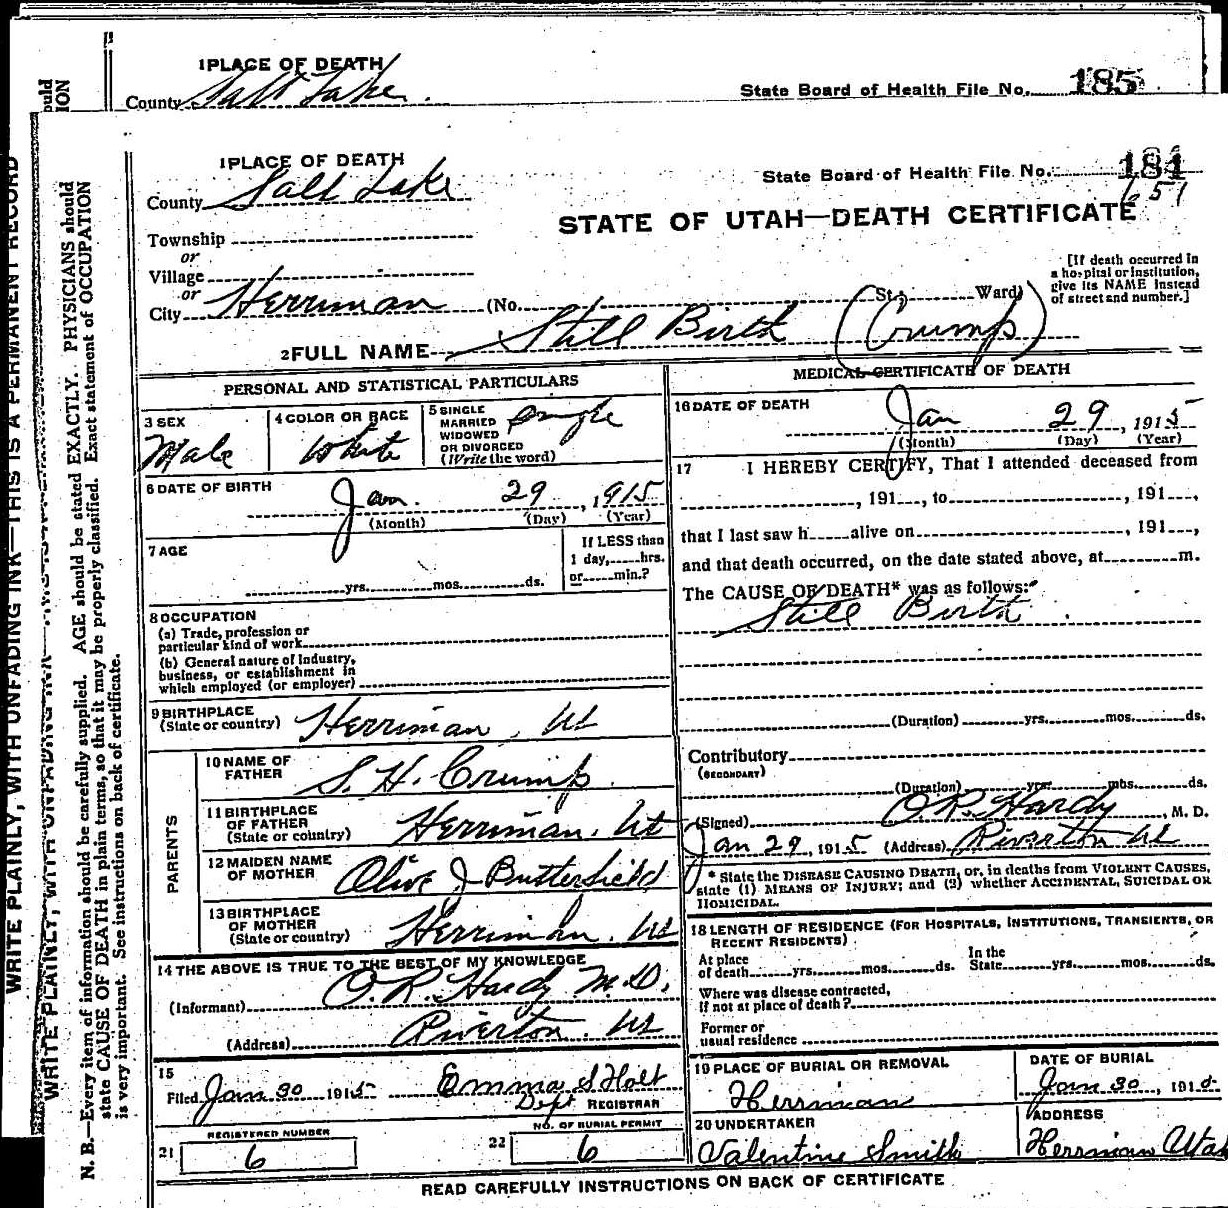 1 PLACE OF DEATH
County Salt Lake.
State Board of Health File No. 185
ould
ION
WRITE PLAINLY, WITH UNFADING INK—THIS IS A PERMANENT RECORD
WRITE PLAINLY, WITH UNFADING INK
N. B.—Every item of information should be carefully supplied. AGE should be stated EXACTLY. PHYSICIANS should
state CAUSE OF DEATH in plain terms, so that it may be properly classified. Exact statement of OCCUPATION
is very important. See instructions on back of certificate.
1 PLACE OF DEATH
County Salt Lake
State Board of Health File No. 184
651
STATE OF UTAH—DEATH CERTIFICATE
Township
or
Village
or
City Herriman (No. St.; Ward)
[If death occurred in
a hospital or institution,
give its NAME instead
of street and number.]
2 FULL NAME Still Birth (Crump)
PERSONAL AND STATISTICAL PARTICULARS
3 SEX
Male
4 COLOR OR RACE
White
5 SINGLE
MARRIED
WIDOWED
OR DIVORCED
(Write the word)
Single
6 DATE OF BIRTH
Jan. 29, 1915
(Month) (Day) (Year)
7 AGE
yrs. mos. ds.
If LESS than
1 day, hrs.
or min.?
8 OCCUPATION
(a) Trade, profession or
particular kind of work
(b) General nature of Industry,
business, or establishment in
which employed (or employer)
9 BIRTHPLACE
(State or country) Herriman, Ut
PARENTS
10 NAME OF
FATHER S. H. Crump.
11 BIRTHPLACE
OF FATHER
(State or country) Herriman. Ut
12 MAIDEN NAME
OF MOTHER Olive J Butterfield
13 BIRTHPLACE
OF MOTHER
(State or country) Herriman. Ut
14 THE ABOVE IS TRUE TO THE BEST OF MY KNOWLEDGE
(Informant) O. R. Hardy M.D.
(Address) Riverton. Ut
15
Filed Jan 30 1915 Emma S Holt
Dept REGISTRAR
21 REGISTERED NUMBER
6
22 NO. OF BURIAL PERMIT
6
MEDICAL CERTIFICATE OF DEATH
16 DATE OF DEATH
Jan 29, 1915
(Month) (Day) (Year)
17 I HEREBY CERTIFY, That I attended deceased from
, 191 , to , 191 ,
that I last saw h alive on , 191 ,
and that death occurred, on the date stated above, at m.
The CAUSE OF DEATH* was as follows:
Still Birth.
(Duration) yrs. mos. ds.
Contributory
(SECONDARY)
(Duration) yrs. mos. ds.
(Signed) O. R. Hardy, M. D.
Jan 29, 1915 (Address) Riverton Ut
* State the DISEASE CAUSING DEATH, or, in deaths from VIOLENT CAUSES,
state (1) MEANS OF INJURY; and (2) whether ACCIDENTAL, SUICIDAL OR
HOMICIDAL.
18 LENGTH OF RESIDENCE (FOR HOSPITALS, INSTITUTIONS, TRANSIENTS, OR
RECENT RESIDENTS)
At place
of death yrs. mos. ds.
In the
State yrs. mos. ds.
Where was disease contracted,
if not at place of death?
Former or
usual residence
19 PLACE OF BURIAL OR REMOVAL
Herriman
DATE OF BURIAL
Jan 30, 1915
20 UNDERTAKER
Valentine Smith
ADDRESS
Herriman Utah
READ CAREFULLY INSTRUCTIONS ON BACK OF CERTIFICATE